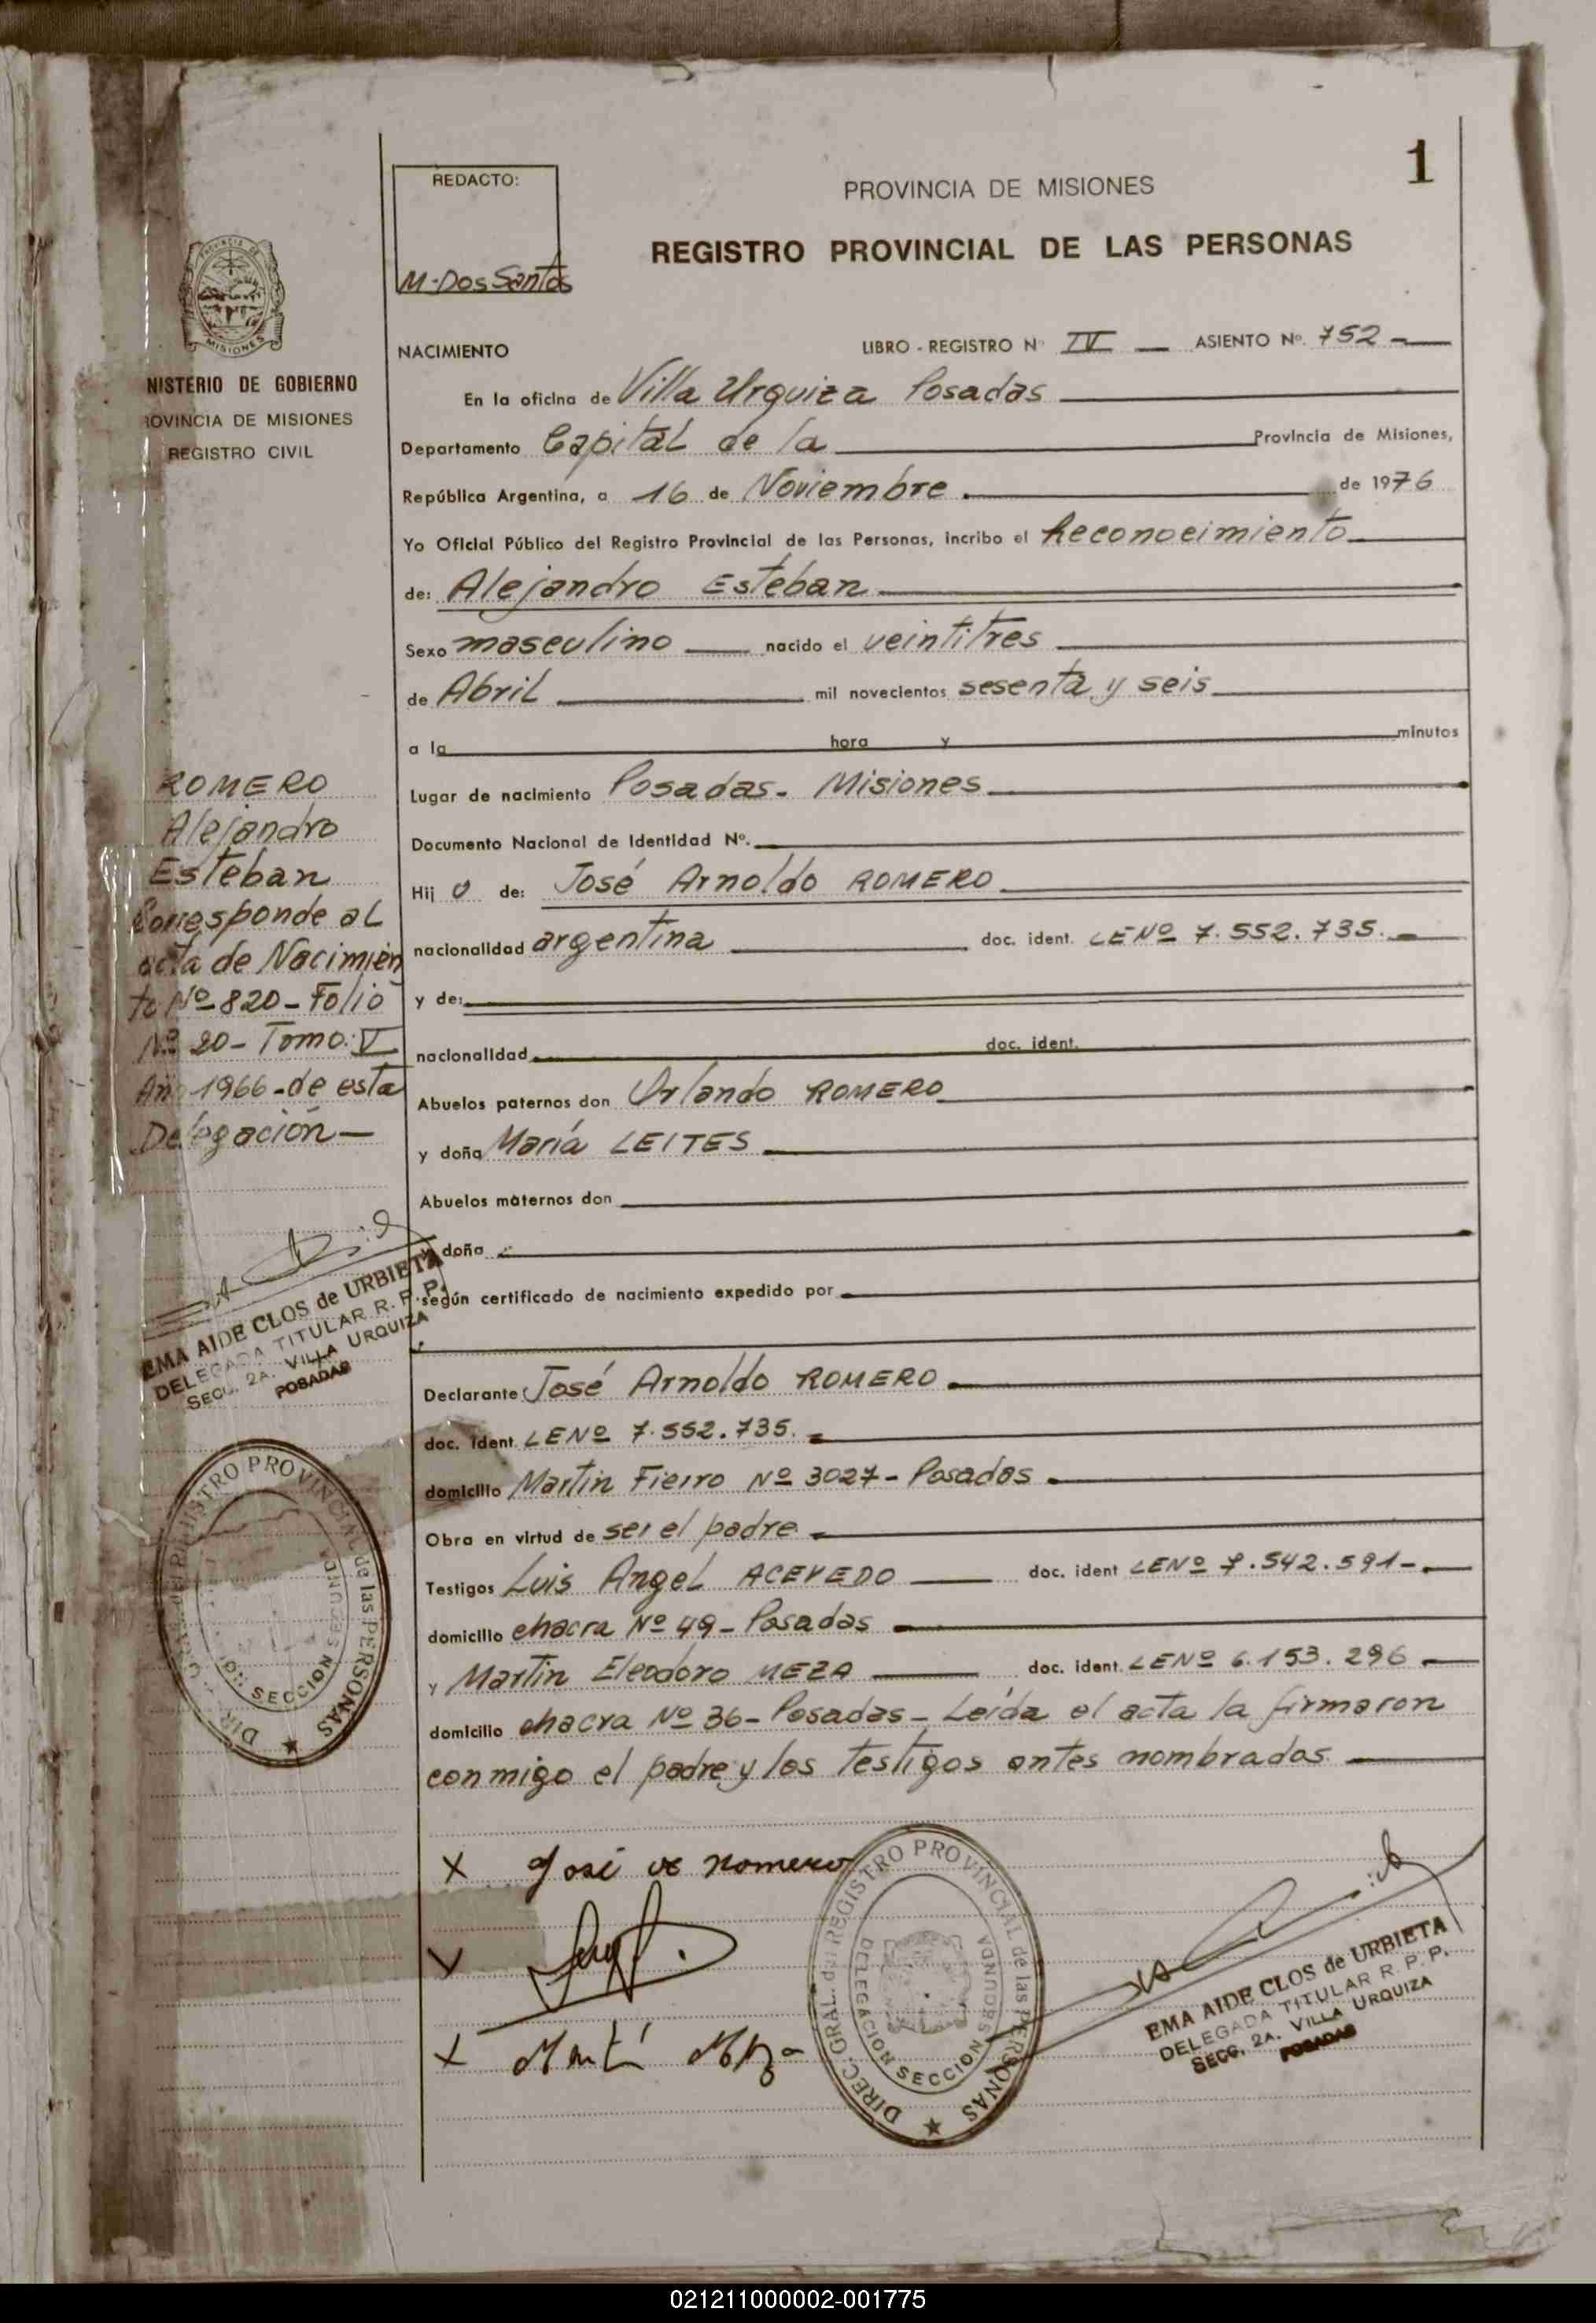 1
REDACTO:
M. Dos Santos
PROVINCIA DE MISIONES
REGISTRO PROVINCIAL DE LAS PERSONAS
NACIMIENTO
LIBRO - REGISTRO Nº IV ASIENTO Nº. 752
En la oficina de Villa Urquiza Posadas
Departamento Capital de la Provincia de Misiones,
República Argentina, a 16 de Noviembre de 1976
Yo Oficial Público del Registro Provincial de las Personas, incribo el Reconocimiento
de: Alejandro Esteban
Sexo masculino nacido el veintitres
de Abril mil novecientos sesenta y seis
a la hora y minutos
Lugar de nacimiento Posadas. Misiones
Documento Nacional de Identidad Nº.
Hij o de: José Arnoldo ROMERO
nacionalidad argentina doc. ident. LE Nº 7.552.735.
y de:
nacionalidad doc. ident.
Abuelos paternos don Orlando ROMERO
y doña María LEITES
Abuelos maternos don
y doña
según certificado de nacimiento expedido por
Declarante José Arnoldo ROMERO
doc. ident. LE Nº 7.552.735.
domicilio Martin Fierro Nº 3027 - Posadas
Obra en virtud de ser el padre
Testigos Luis Angel ACEVEDO doc. ident LE Nº 7.542.591-
domicilio chacra Nº 49 - Posadas
y Martin Eleodoro MEZA doc. ident. LE Nº 6.153.296
domicilio chacra Nº 36 - Posadas - Leída el acta la firmaron
conmigo el padre y los testigos antes nombrados
X José Romero
X
DIREC. GRAL. del REGISTRO PROVINCIAL de las PERSONAS
DELEGACION SECCION SEGUNDA
EMA AIDE CLOS de URBIETA
DELEGADA TITULAR R. P. P.
SECC. 2A. VILLA URQUIZA
POSADAS
PROVINCIA DE
MISIONES
NISTERIO DE GOBIERNO
ROVINCIA DE MISIONES
REGISTRO CIVIL
ROMERO
Alejandro
Esteban
Corresponde al
acta de Nacimien
to Nº 820 - Folio
Nº 20 - Tomo: V
Año 1966 - de esta
Delegación -
EMA AIDE CLOS de URBIETA
DELEGADA TITULAR R. P. P.
SECC. 2A. VILLA URQUIZA
POSADAS
REGISTRO PROVINCIAL de las PERSONAS
SECCION SEGUNDA
021211000002-001775